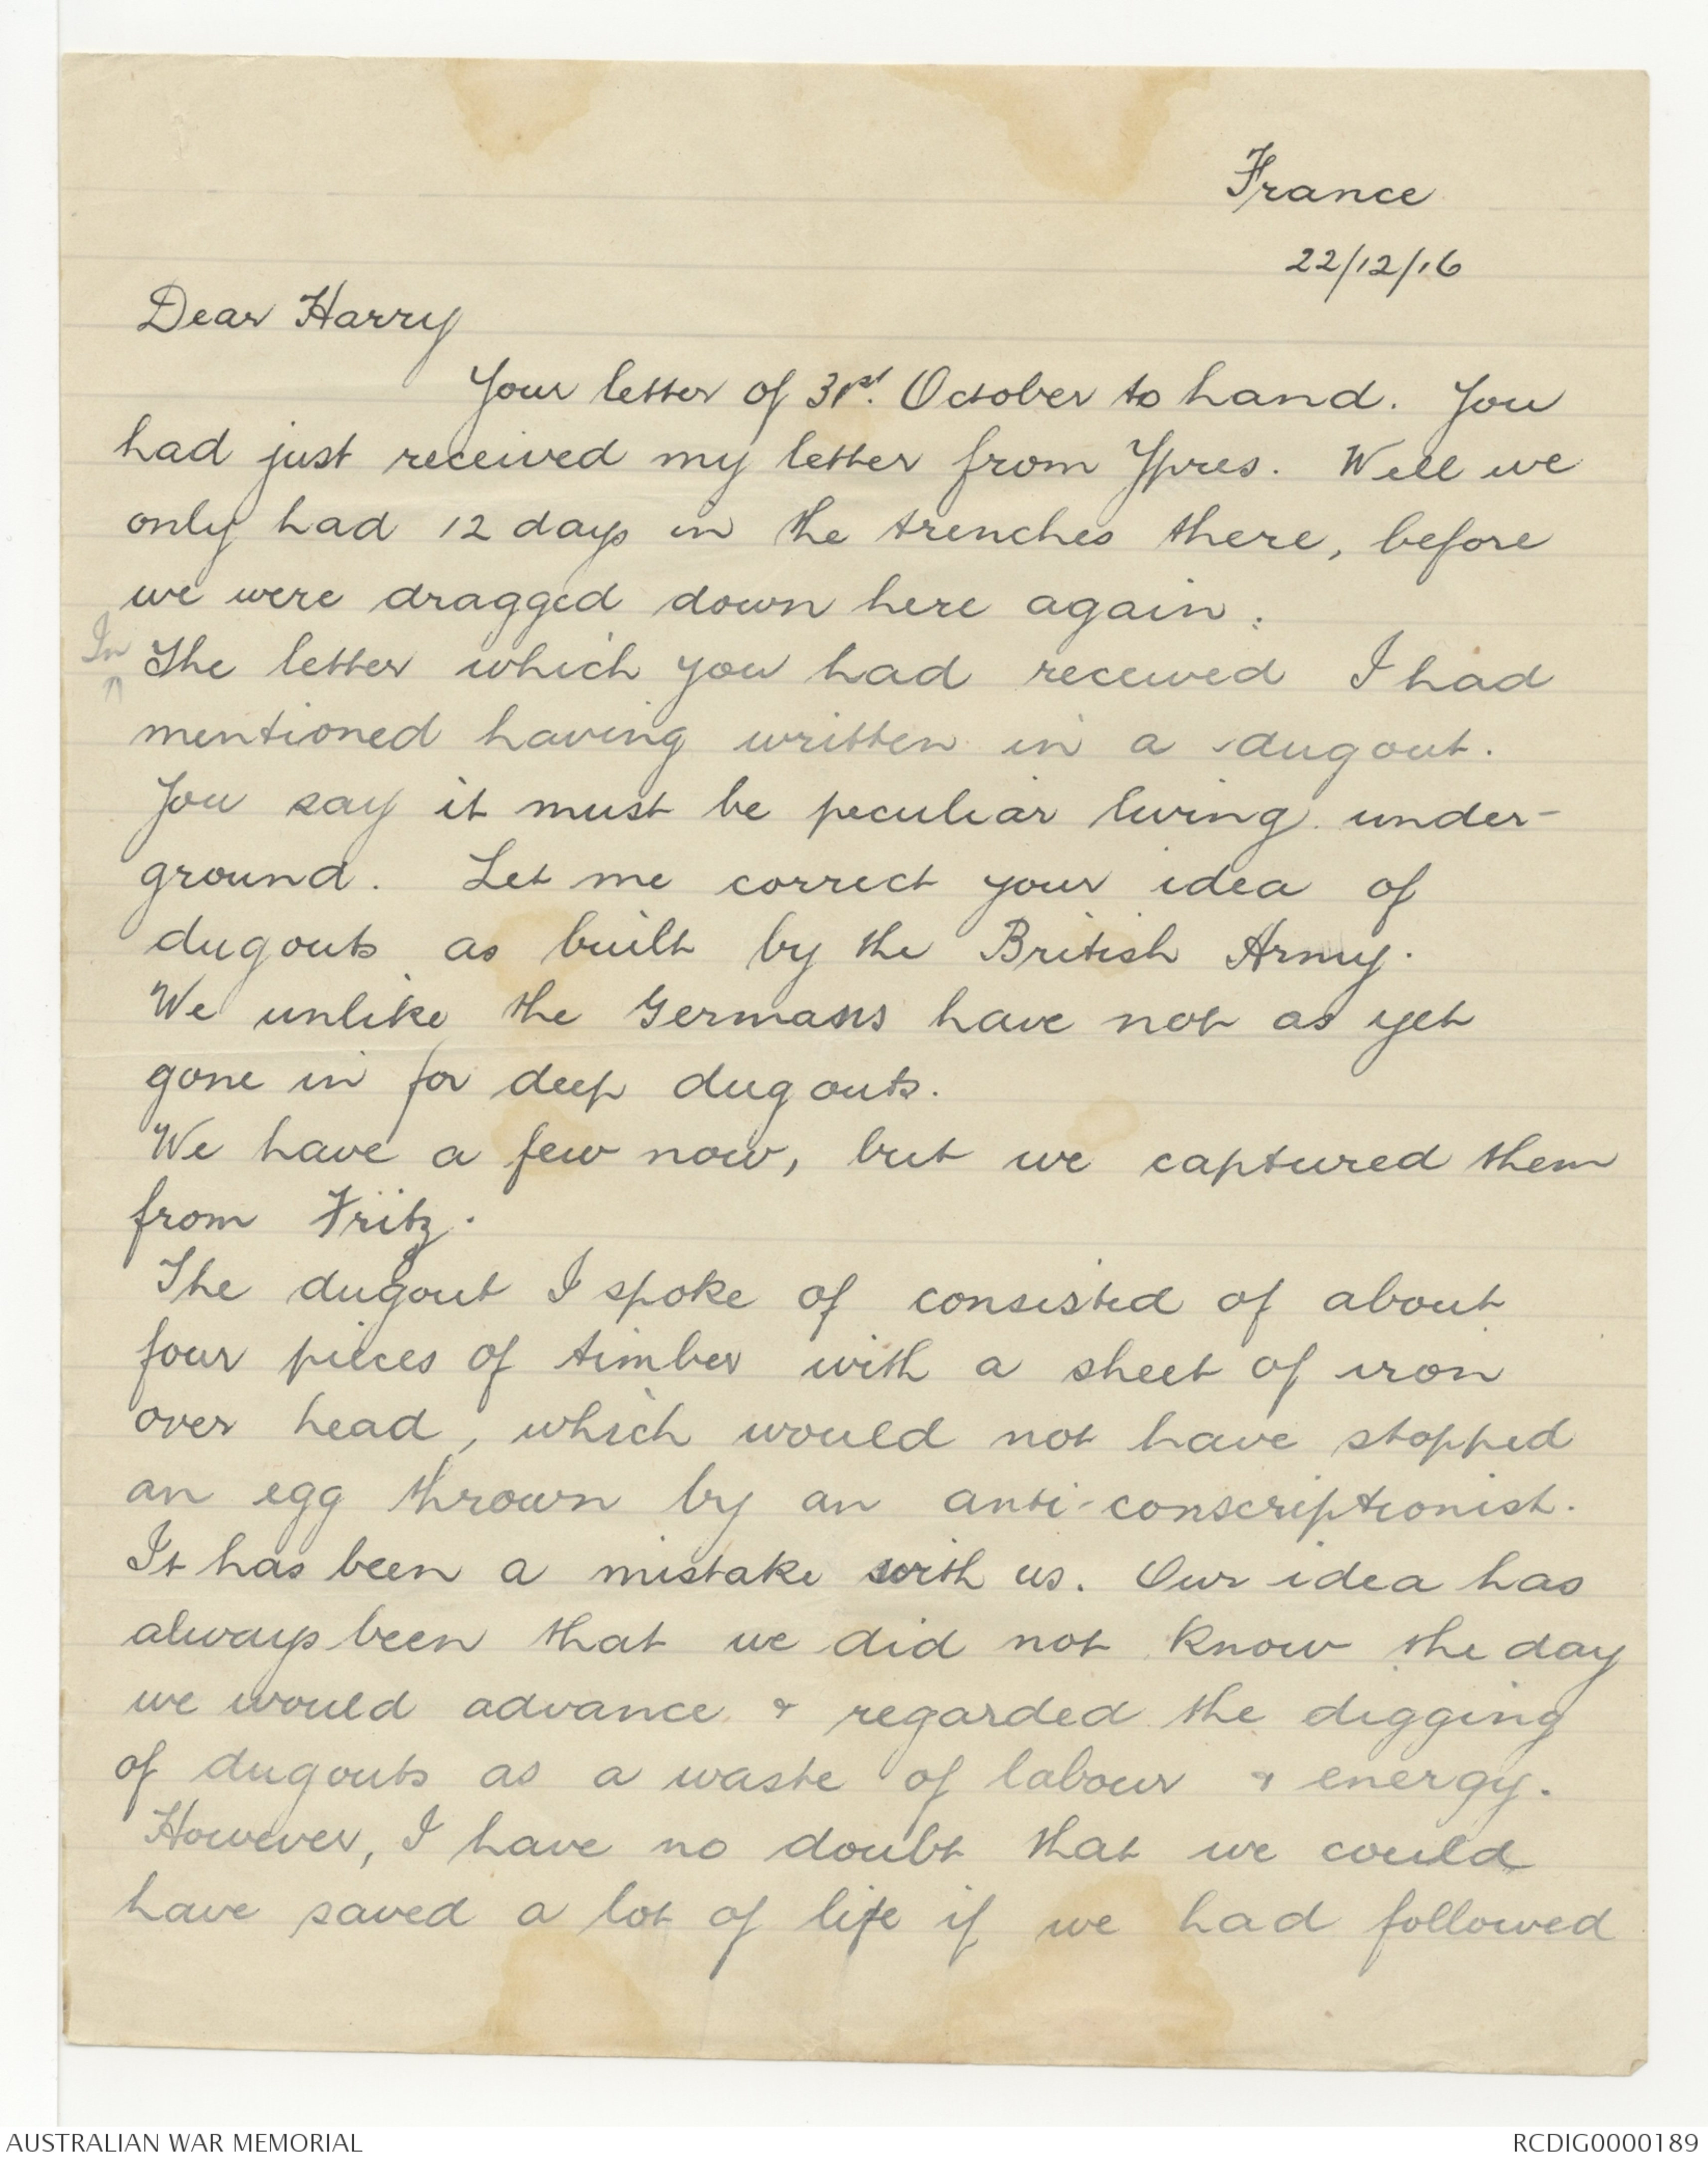 France
22/12/16
Dear Harry
Your letter of 31st. October to hand. You
had just received my letter from Ypres. Well we
only had 12 days in the trenches there, before
we were dragged down here again.
In
The letter which you had received I had
mentioned having written in a dugout.
You say it must be peculiar living under-
ground. Let me correct your idea of
dugouts as built by the British Army.
We unlike the Germans have not as yet
gone in for deep dugouts.
We have a few now, but we captured them
from Fritz.
The dugout I spoke of consisted of about
four pieces of timber with a sheet of iron
over head, which would not have stopped
an egg thrown by an anti-conscriptionist.
It has been a mistake with us. Our idea has
always been that we did not know the day
we would advance & regarded the digging
of dugouts as a waste of labour & energy.
However, I have no doubt that we could
have saved a lot of life if we had followed
AUSTRALIAN WAR MEMORIAL
RCDIG0000189